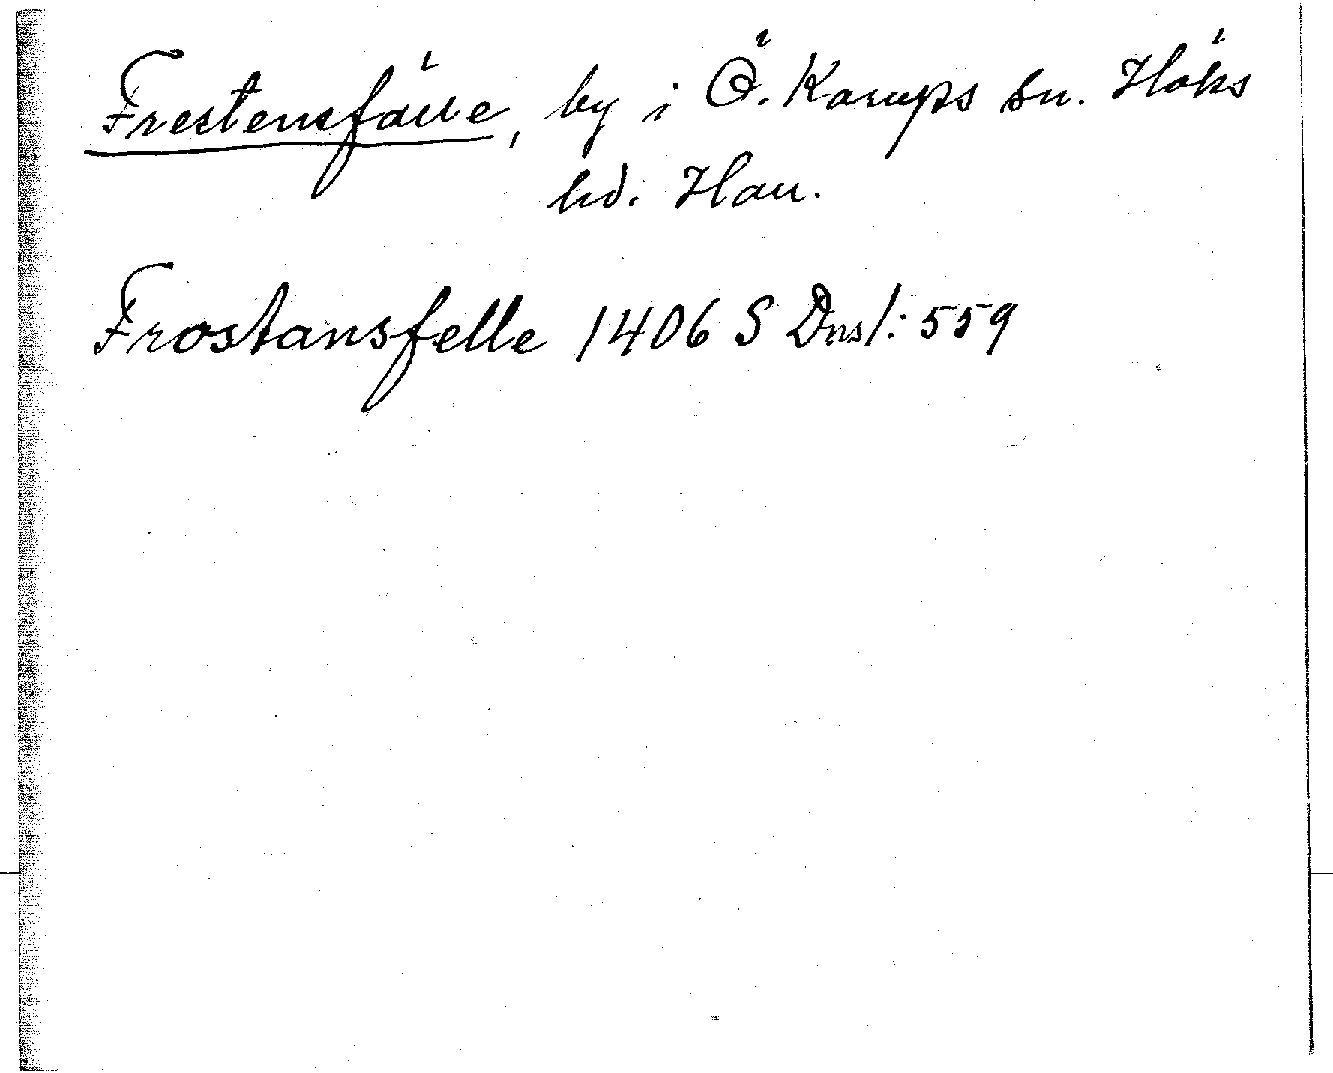 Frestensfälle, by i Ö. Karups sn. Höks
hd. Hall.
Frostansfelle 1406 SDns 1: 559